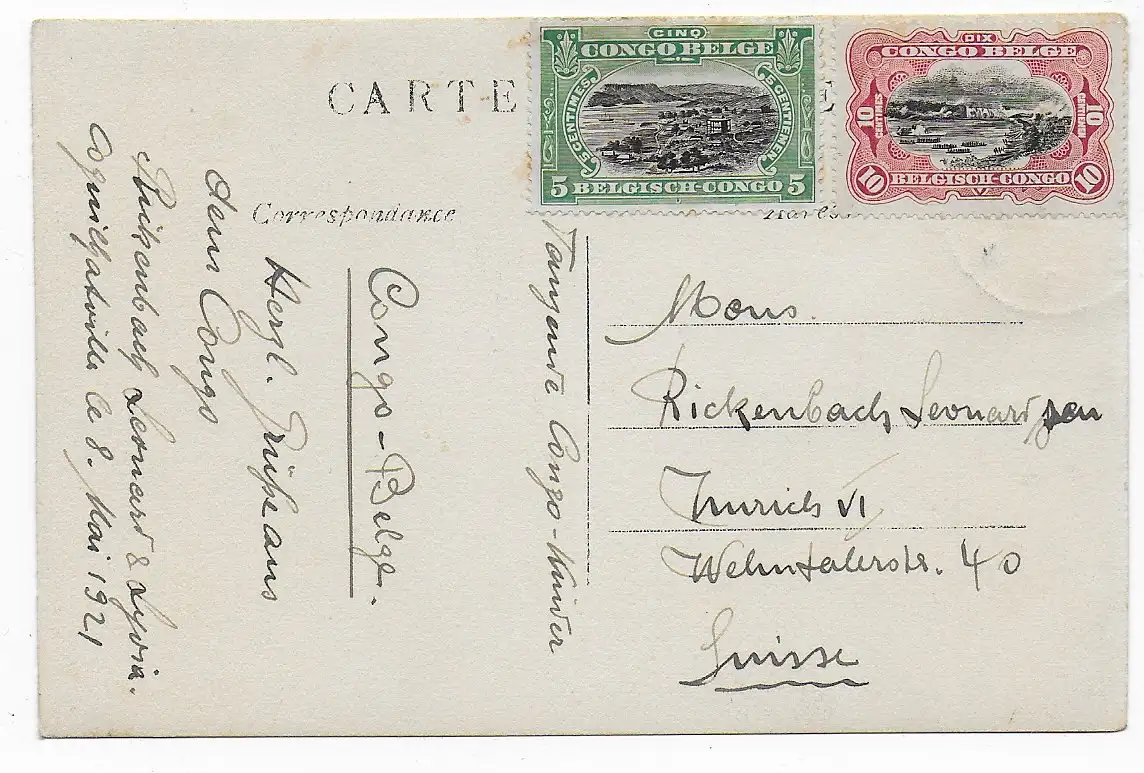 CARTE
CINQ
CONGO BELGE
5 CENTIMES
5 CENTIEMEN
5 BELGISCH-CONGO 5
DIX
CONGO BELGE
10 CENTIMES
10 CENTIEMEN
10 BELGISCH-CONGO 10
Correspondance
Tanzende Congo-Kinder
Congo-Belge.
Herzl. Grüße aus
dem Congo
Rickenbach Leonard & Lydia.
Coquilhatville le 8. Mai 1921
Mons.
Rickenbach Leonard sen
Zurich VI
Wehntalerstr. 40
Suisse